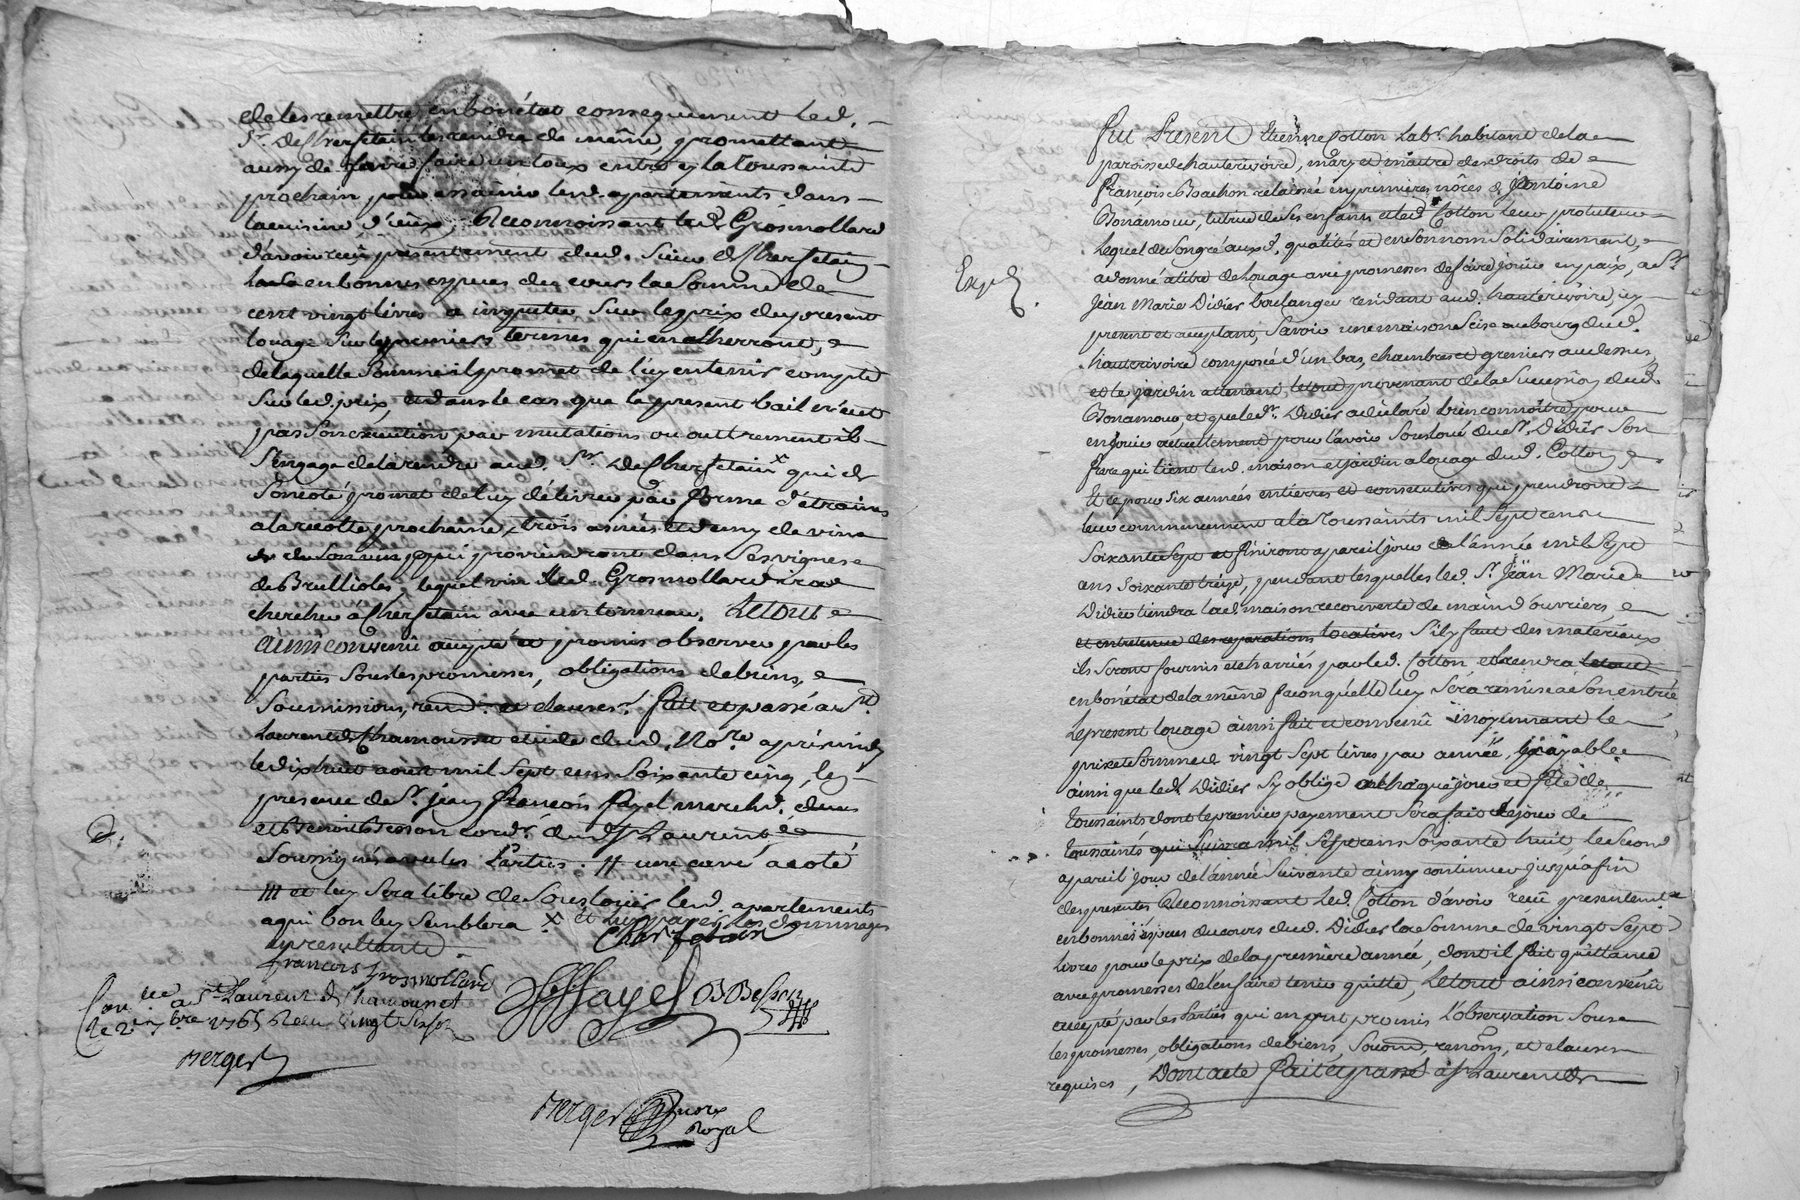 de les remettre en bon état consequemment led.
Sr. De Chersetain les rendra de même, promettant
aussy de faire faire un toux entre cy la toussaint
prochain pour assainir lesd. appartements dans
la cuisine d'iceux. Reconnoissant led. Grosmollard
d'avoir reçu présentement dud. Sieur de Chersetain
en bonnes espèces du cours la Somme de
cent vingt livres a imputer Sur le prix du present
louage Sur les premiers termes qui en écherront,
de laquelle Somme il promet de luy en tenir compte
Sur led. prix, et dans le cas que le present bail n'eut
pas Son execution par mutations ou autrement il
S'engage de la rendre aud. Sr. De Chersetain x qui de
Son coté promet de luy délivrer par forme d'étraines
a la recolte prochaine, trois anées et demy de vin
qui proviendront dans Ses vignes
de Brullioles, lequel vin led. Grosmollard ira
chercher a Chersetain avec un tonneau. Le tout
ainsi convenû accepté et promis observer par les
parties Sous les promesses, obligations de biens,
Soumissions, renon. et clauses. fait et passé a St.
Laurent de Chamousset etude dud. Nore. après midy
le dix huit aout mil Sept cens Soixante cinq, en
presence de Sr. jean François fayel march. dud.
et Benoit Besson cord. dud. St Laurent
Soussignés avec les Parties. // une cave a coté
/// et luy Sera libre de Souslouer lesd. apartements
a qui bon luy Semblera x et luy payer les dommages
en resultants
francois grosmollard
JFFayel BBesson
Con.lée a St. Laurent de Chamousset
le 2 7bre 1765 Reçu vingt Six Sols
Berger
Berger Nore Royal
Expé.
Fut Présent Etienne Cotton Labr. habitant de la
paroisse de hauterivoire, mary et maître des droits de
françoise Bachon relaissée en premieres nôces d'Antoine
Bonamour, tutrice de Ses enfants et led. Cotton leur protuteur
Lequel de Son gré auxd. qualités et en Son nom Solidairement,
a donné a titre de Louage avec promesses de faire jouir en paix, a Sr.
Jean Marie Didier boulanger residant aud. hauterivoire icy
present et acceptant, Savoir une maison Scise au bourg dud.
hauterivoire composée d'un bas, chambres et greniers au dessus,
et le jardin attenant, le tout provenant de la Succession dud.
Bonamour, et que led. Sr. Didier a déclaré bien connoître pour
en jouir actuellement pour l'avoir Sousloué du Sr. Didier Son
frere qui tient lesd. maison et jardin a louage dud. Cotton,
Et ce pour Six années entieres et consecutives qui prendront
leur commencement a la Toussaints mil Sept cens
Soixante Sept et finiront a pareil jour de l'année mil Sept
cens Soixante treize, pendant lesquelles led. Sr. Jean Marie
Didier tiendra lad. maison recouverte de main d'ouvriers,
et entretenue des reparations locatives S'il y faut des matériaux
ils Seront fournis et charriés par led. Cotton et rendra le tout
en bon état de la même façon qu'elle luy Sera remise a Son entrée
Le present louage ainsi fait et convenû moyennant le
prix et Somme de vingt Sept livres par année, payable
ainsi que led. Didier S'y oblige a chaque jour et fête de
Toussaints dont le premier payement Sera fait le jour de
Toussaints qui Suivra mil Sept cens Soixante huit, le Second
a pareil jour de l'année Suivante ainsy continuer jusqu'a fin
des presentes Reconnoissant led. Cotton d'avoir reçû presentement
en bonnes espèces du cours dud. Didier la Somme de vingt Sept
livres pour le prix de la premiere année, dont il fait quittance
avec promesses de l'en faire tenir quitte, Le tout ainsi convenû
accepté par les Parties qui en ont promis l'observation Sous
les promesses, obligations de biens, Soumon, renon, et clauses
requises, Dont acte fait et passé a St Laurent de